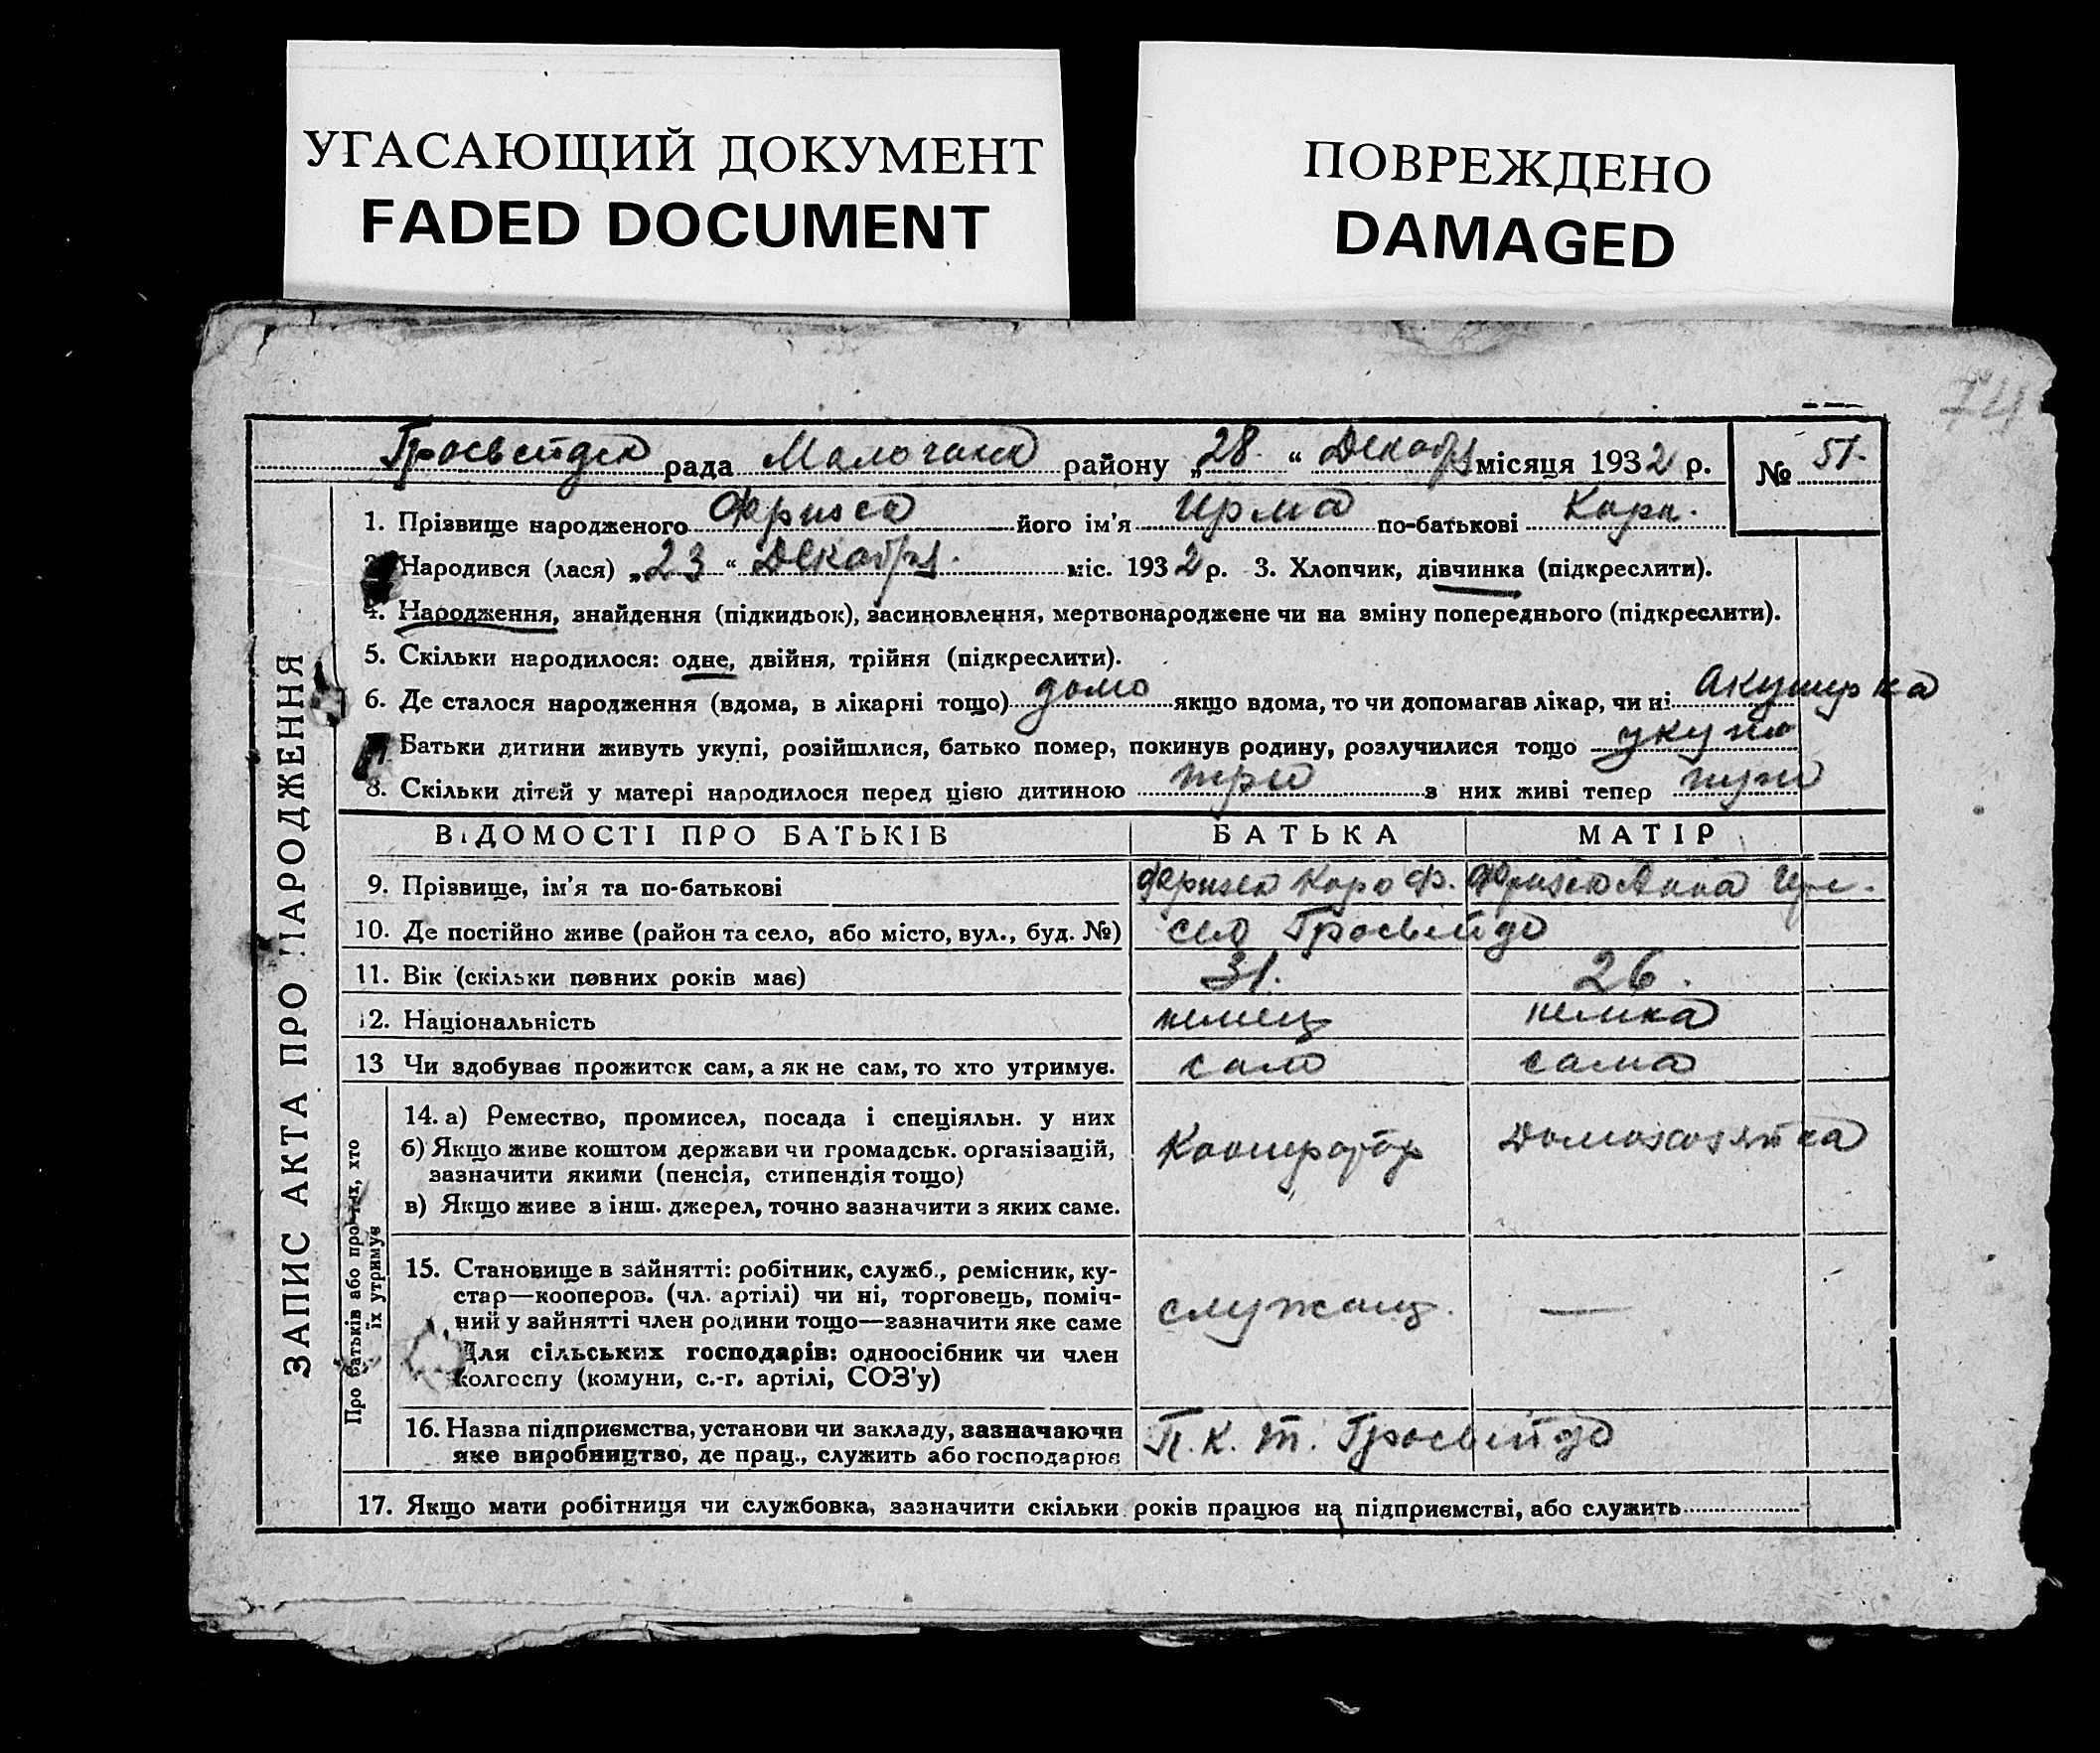 УГАСАЮЩИЙ ДОКУМЕНТ
FADED DOCUMENT
ПОВРЕЖДЕНО
DAMAGED
рада района „28. “ Декабр місяця 1932 р. № 51.
1. Прізвище народженого його ім'я Ирма по-батькові
Народився (лася) „23 “ Декабр. міс. 1932 р. 3. Хлопчик, дівчинка (підкреслити).
4. Народження, знайдення (підкидьок), засиновлення, мертвонароджене чи на зміну попереднього (підкреслити).
5. Скільки народилося: одне, двійня, трійня (підкреслити).
6. Де сталося народження (вдома, в лікарні тощо) дома якщо вдома, то чи допомагав лікар, чи ні Акушерка
Батьки дитини живуть укупі, розійшлися, батько помер, покинув родину, розлучилися тощо
8. Скільки дітей у матері народилося перед цією дитиною три з них живі тепер
ВІДОМОСТІ ПРО БАТЬКІВ БАТЬКА МАТІР
9. Прізвище, ім'я та по-батькові Анна
10. Де постійно живе (район та село, або місто, вул., буд. №) село Гросвейдо
11. Вік (скільки повних років має) 31. 26.
12. Національність немец немка
13 Чи здобуває прожиток сам, а як не сам, то хто утримує. сам сама
14. а) Ремество, промисел, посада і спеціяльн. у них
б) Якщо живе коштом держави чи громадськ. організацій,
зазначити якими (пенсія, стипендія тощо)
в) Якщо живе з інш. джерел, точно зазначити з яких саме.
Кооператор Домохозяйка
15. Становище в зайнятті: робітник, служб., ремісник, ку-
стар—кооперов. (чл. артілі) чи ні, торговець, поміч-
ний у зайнятті член родини тощо—зазначити яке саме
Для сільських господарів: одноосібник чи член
колгоспу (комуни, с.-г. артілі, СОЗ'у)
служащ. —
16. Назва підприємства, установи чи закладу, зазначаючи
яке виробництво, де прац., служить або господарює
П. К. Т. Гросвейдо
17. Якщо мати робітниця чи службовка, зазначити скільки років працює на підприємстві, або служить
ЗАПИС АКТА ПРО НАРОДЖЕННЯ
Про батьків або про тих, хто
їх утримує